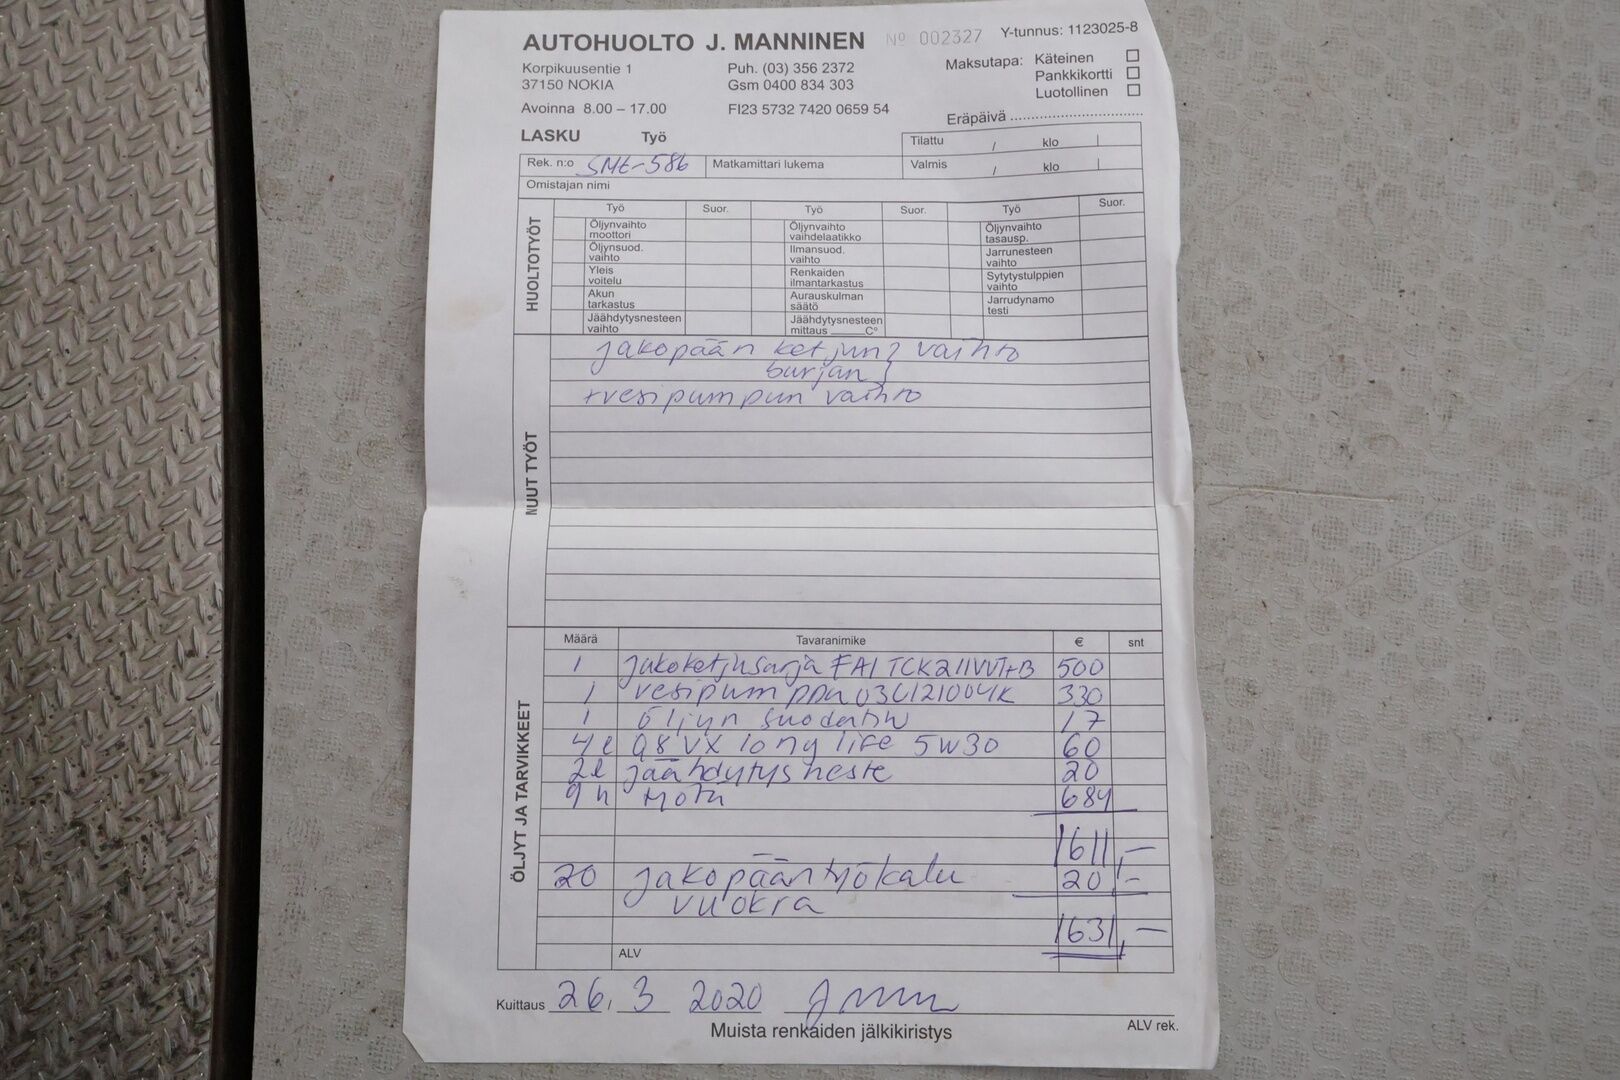 AUTOHUOLTO J. MANNINEN Nº 002327 Y-tunnus: 1123025-8
Korpikuusentie 1 Puh. (03) 356 2372 Maksutapa: Käteinen
37150 NOKIA Gsm 0400 834 303 Pankkikortti
Luotollinen
Avoinna 8.00 – 17.00 FI23 5732 7420 0659 54 Eräpäivä
LASKU Työ Tilattu / klo
Rek. n:o SME-586 Matkamittari lukema Valmis / klo
Omistajan nimi
HUOLTOTYÖT
Työ Suor. Työ Suor. Työ Suor.
Öljynvaihto moottori Öljynvaihto vaihdelaatikko Öljynvaihto tasausp.
Öljynsuod. vaihto Ilmansuod. vaihto Jarrunesteen vaihto
Yleis voitelu Renkaiden ilmantarkastus Sytytystulppien vaihto
Akun tarkastus Aurauskulman säätö Jarrudynamo testi
Jäähdytysnesteen vaihto Jäähdytysnesteen mittaus ______C°
MUUT TYÖT
jakopään ketjun vaihto
surjan
+vesipumpun vaihto
ÖLJYT JA TARVIKKEET
Määrä Tavaranimike € snt
1 jakoketjusarja FAI TCK211VVT+B 500
1 330
1 öljyn suodatin 17
4 l Q8 VX long life 5W30 60
2l jäähdytysneste 20
9 h työtä 684
1611,-
20 jakopään työkalu 20,-
vuokra
1631,-
ALV
Kuittaus 26. 3 2020
ALV rek.
Muista renkaiden jälkikiristys